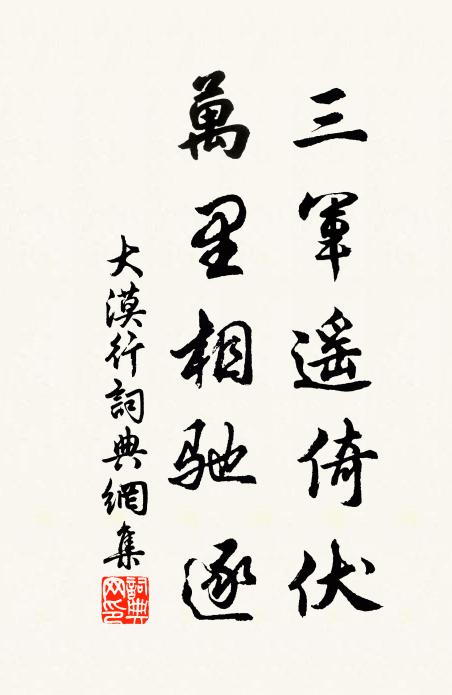 三軍遥倚伏
萬里相馳逐
大漠行詞典網集
詞典網印